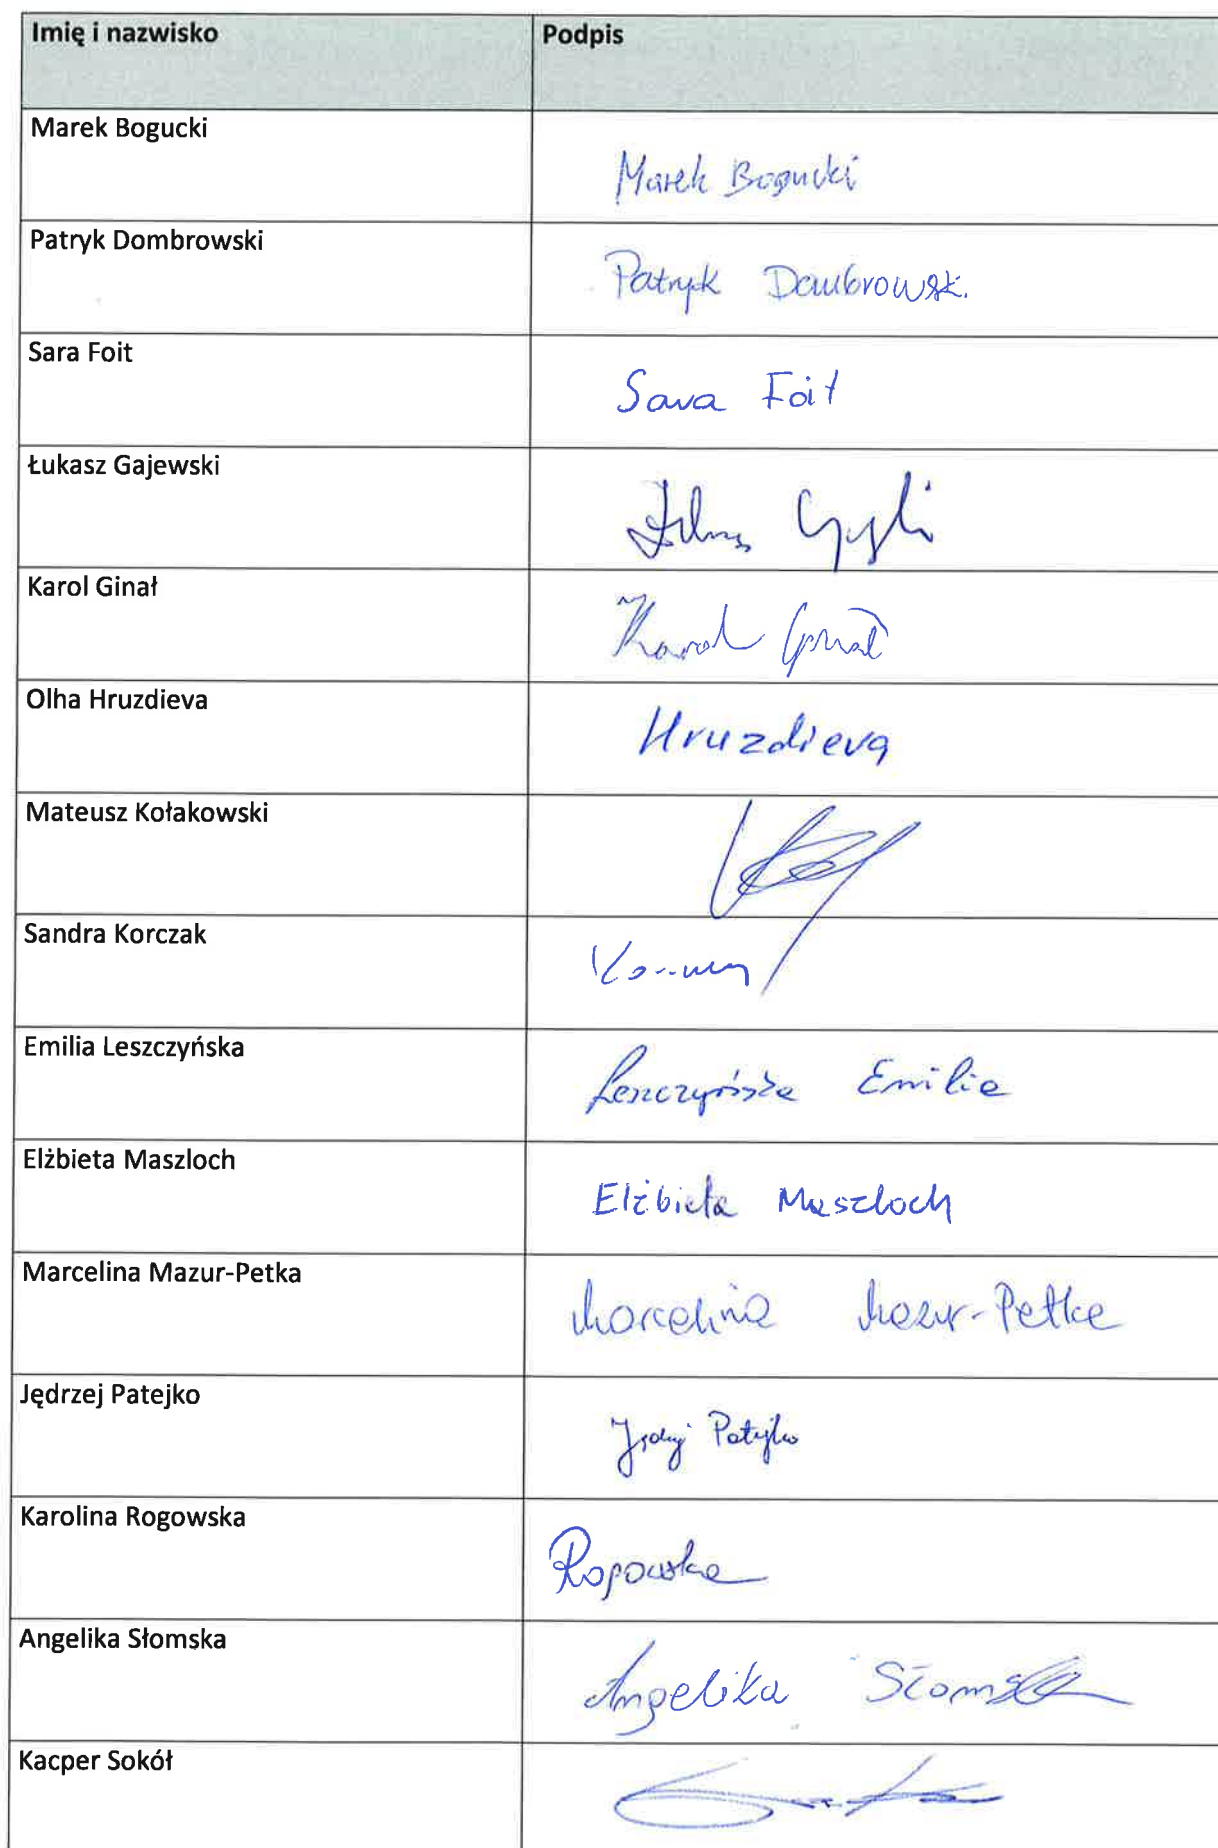 Imię i nazwisko Podpis
Marek Bogucki
Marek Bogucki
Patryk Dombrowski
Patryk Dombrowski
Sara Foit
Sara Foit
Łukasz Gajewski
Karol Ginał
Karol Ginał
Olha Hruzdieva
Hruzdieva
Mateusz Kołakowski
Sandra Korczak
Emilia Leszczyńska
Leszczyńska Emilia
Elżbieta Maszloch
Elżbieta Maszloch
Marcelina Mazur-Petka
Marcelina Mazur-Petka
Jędrzej Patejko
Jędrzej Patejko
Karolina Rogowska
Rogowska
Angelika Słomska
Angelika Słomska
Kacper Sokół